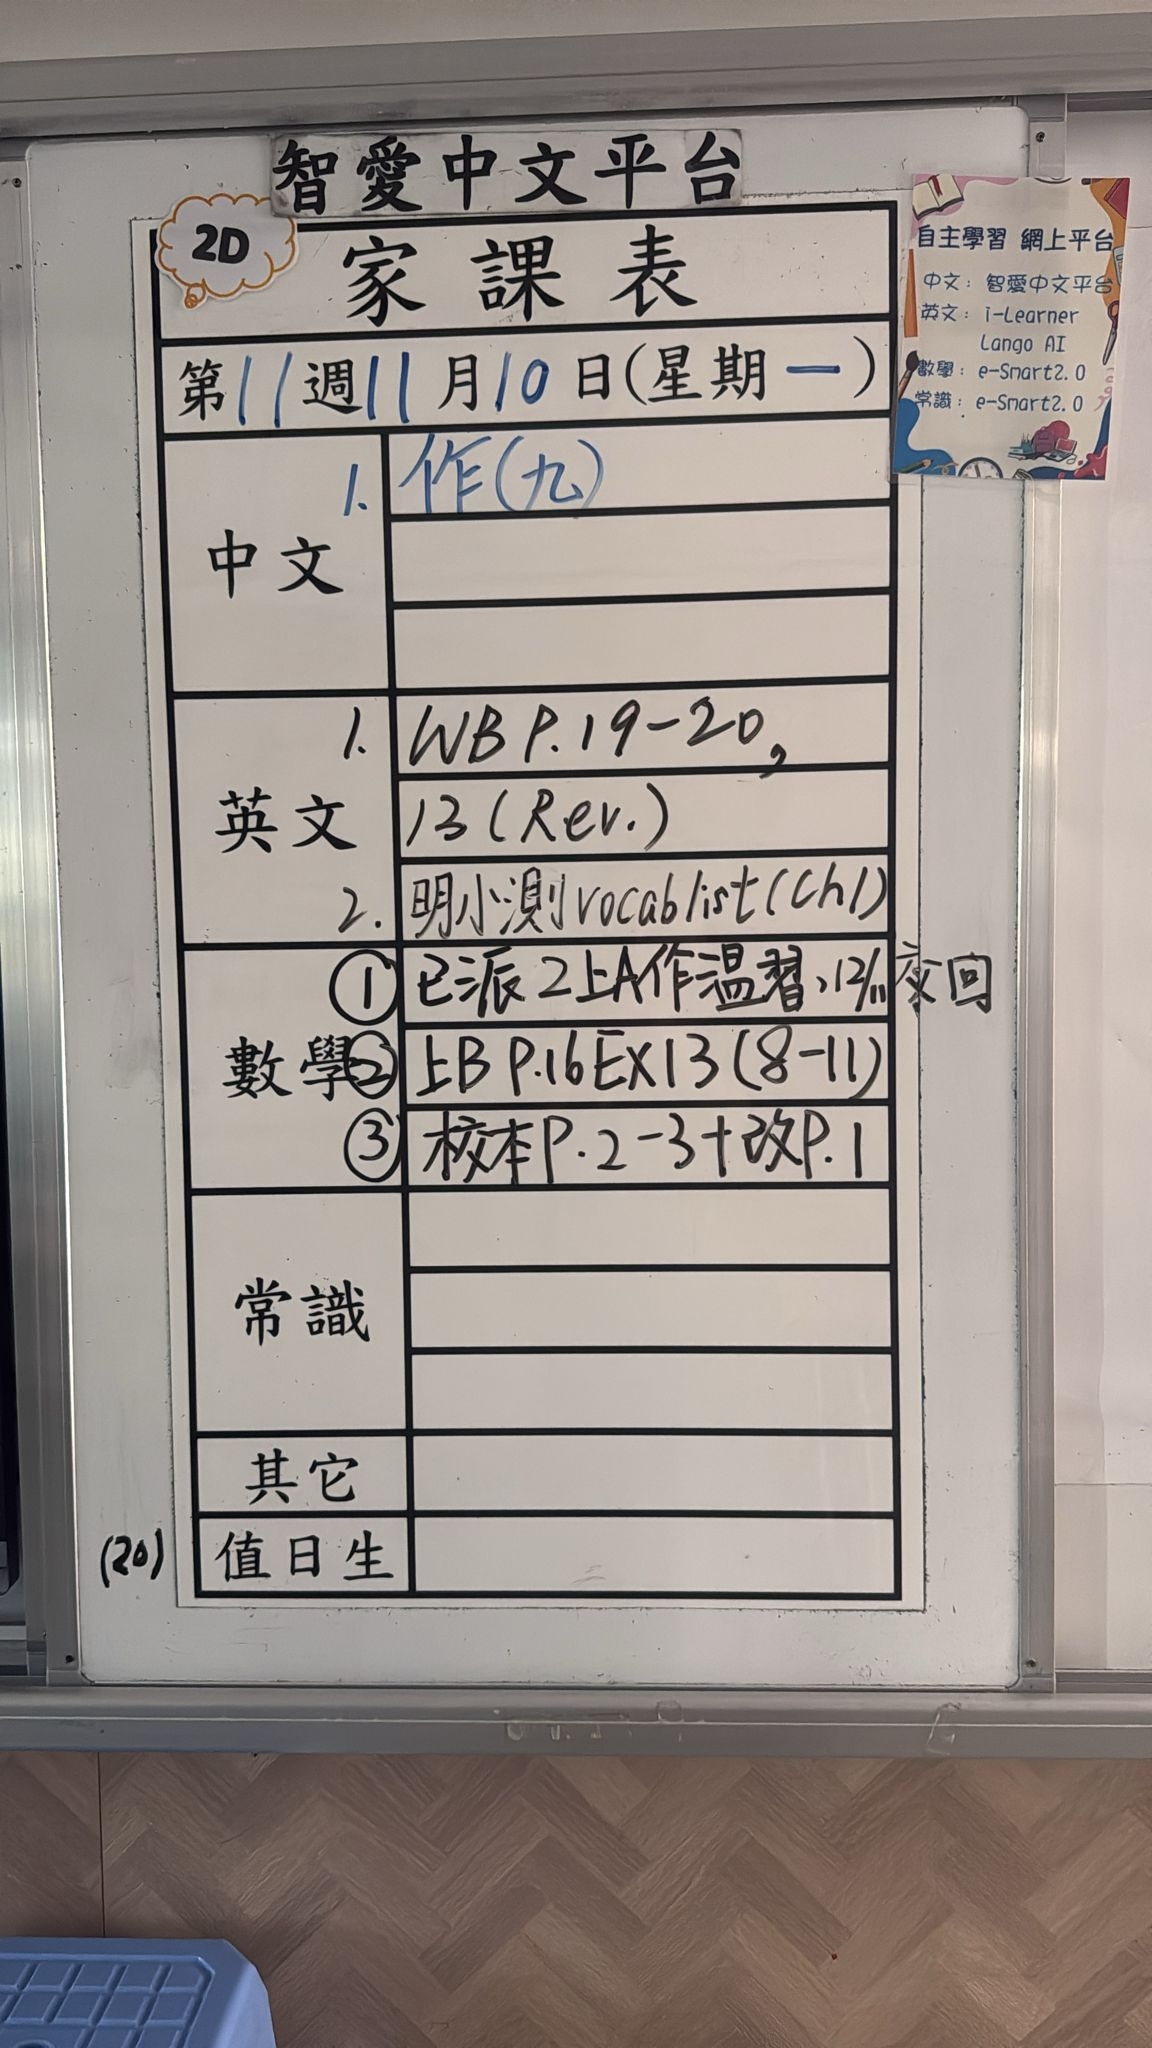 智愛中文平台
2D
家課表
第11週11月10日(星期一)
中文
1. 作(九)
英文
1. WB P.19-20,
13 (Rev.)
2. 明小測vocab list (Ch1)
數學
① 已派2上A作溫習、12/11交回
② 上B P.16 EX13 (8-11)
③ 校本P.2-3+改P.1
常識
其它
(20)
值日生
自主學習 網上平台
中文: 智愛中文平台
英文: i-Learner
Lango AI
數學: e-Smart2.0
常識: e-Smart2.0